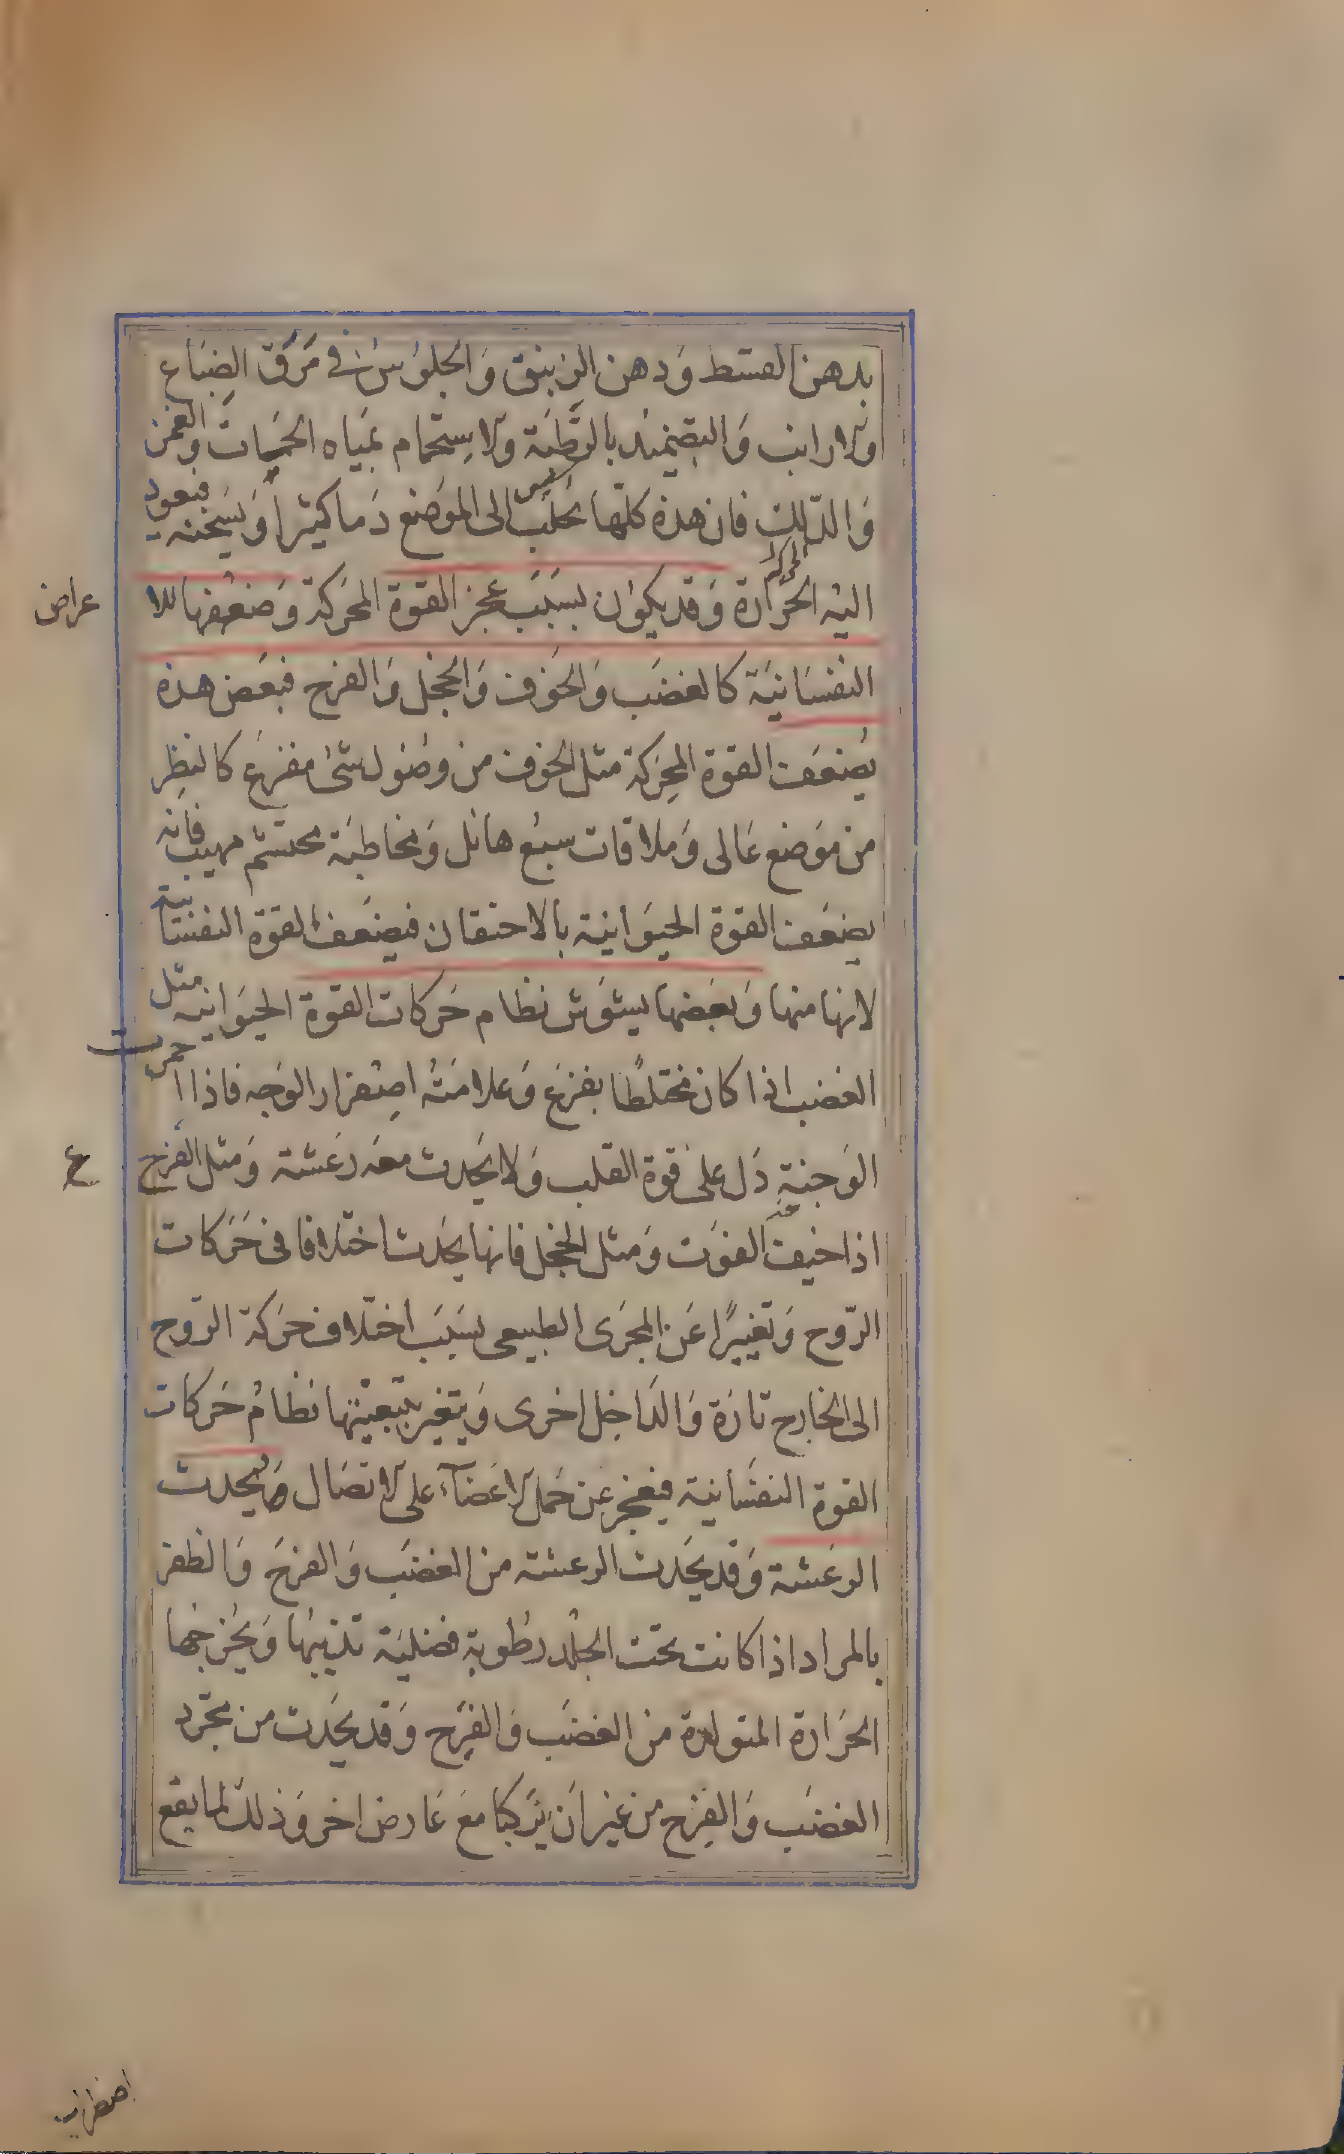 بدهن القسط وَدهن الزبنق وَالجلوس فى مَرَق الضباع
والارانب وَالتضميد بالرَطبَة والاستحمام بمَياه الحَميَات وَالغمز
وَالدَلك فان هذه كلّها تجلب الى الموَضع دَما كثيرا وَيسَخنه فيعود
اليه الحَرَارة وَقد يكون بسَبَب عجز القوة المحَركة وَضعفها للا
عراض
النفسَانيَة كالغضَب وَالخوَف وَالخجَل وَالفرح فبعَض هذه
يُضعَف القوة المحِركة مثل الخوف من وصُول شئ مفزع كالنظِر
من مَوَضع عَالى وَملاقات سبُع هائل وَمخاطبَة محتشم مهيب فانه
يضعَف القوة الحيَوانية بالاحتقان فيضعَف القوة النفسَانية
لانها منها وَبعَضها يشوَش نظام حَركات القوة الحيَوانيه مثل
الغضب اذا كان مختلطًا بفزع وَعلامَته اصِفرار الوَجه فاذا احمرت
الوَجنةِ دَل على قوة القلب وَلا يحَدث معَه رَعَشة وَمثل الفرح
اذا خيف الفوَت وَمثل الخجل فانها يحَدث اختلافا فى حَرَكات
الرّوح وَتغييرًا عَن المجرَى الطبيعى بسَبَب اختلاف حَركة الرّوح
الى الخارج تارَة وَالداخل اخرى وَيتغير بتبعيّتها نظام حَركات
القوة النفسَانية فيعجز عن حَمل الاعَضآء على الاتصَال وَيحدث
الرعَشة وَقد يحَدث الرعشة من الغضَب وَالفرَح وَالظفر
بالمراد اذا كانت تحَت الجلد رطُوبة فضليَة تذيبهُا وَيخُرجهَا
الحَرَارة المتولدة من الغضَب وَالفرَح وَقد يحَدث من مجَرّد
الغضَب وَالفرَح من غير اَن يَتركبا مَعَ عَارض اخر وَذلك لما يقع
اضطراب